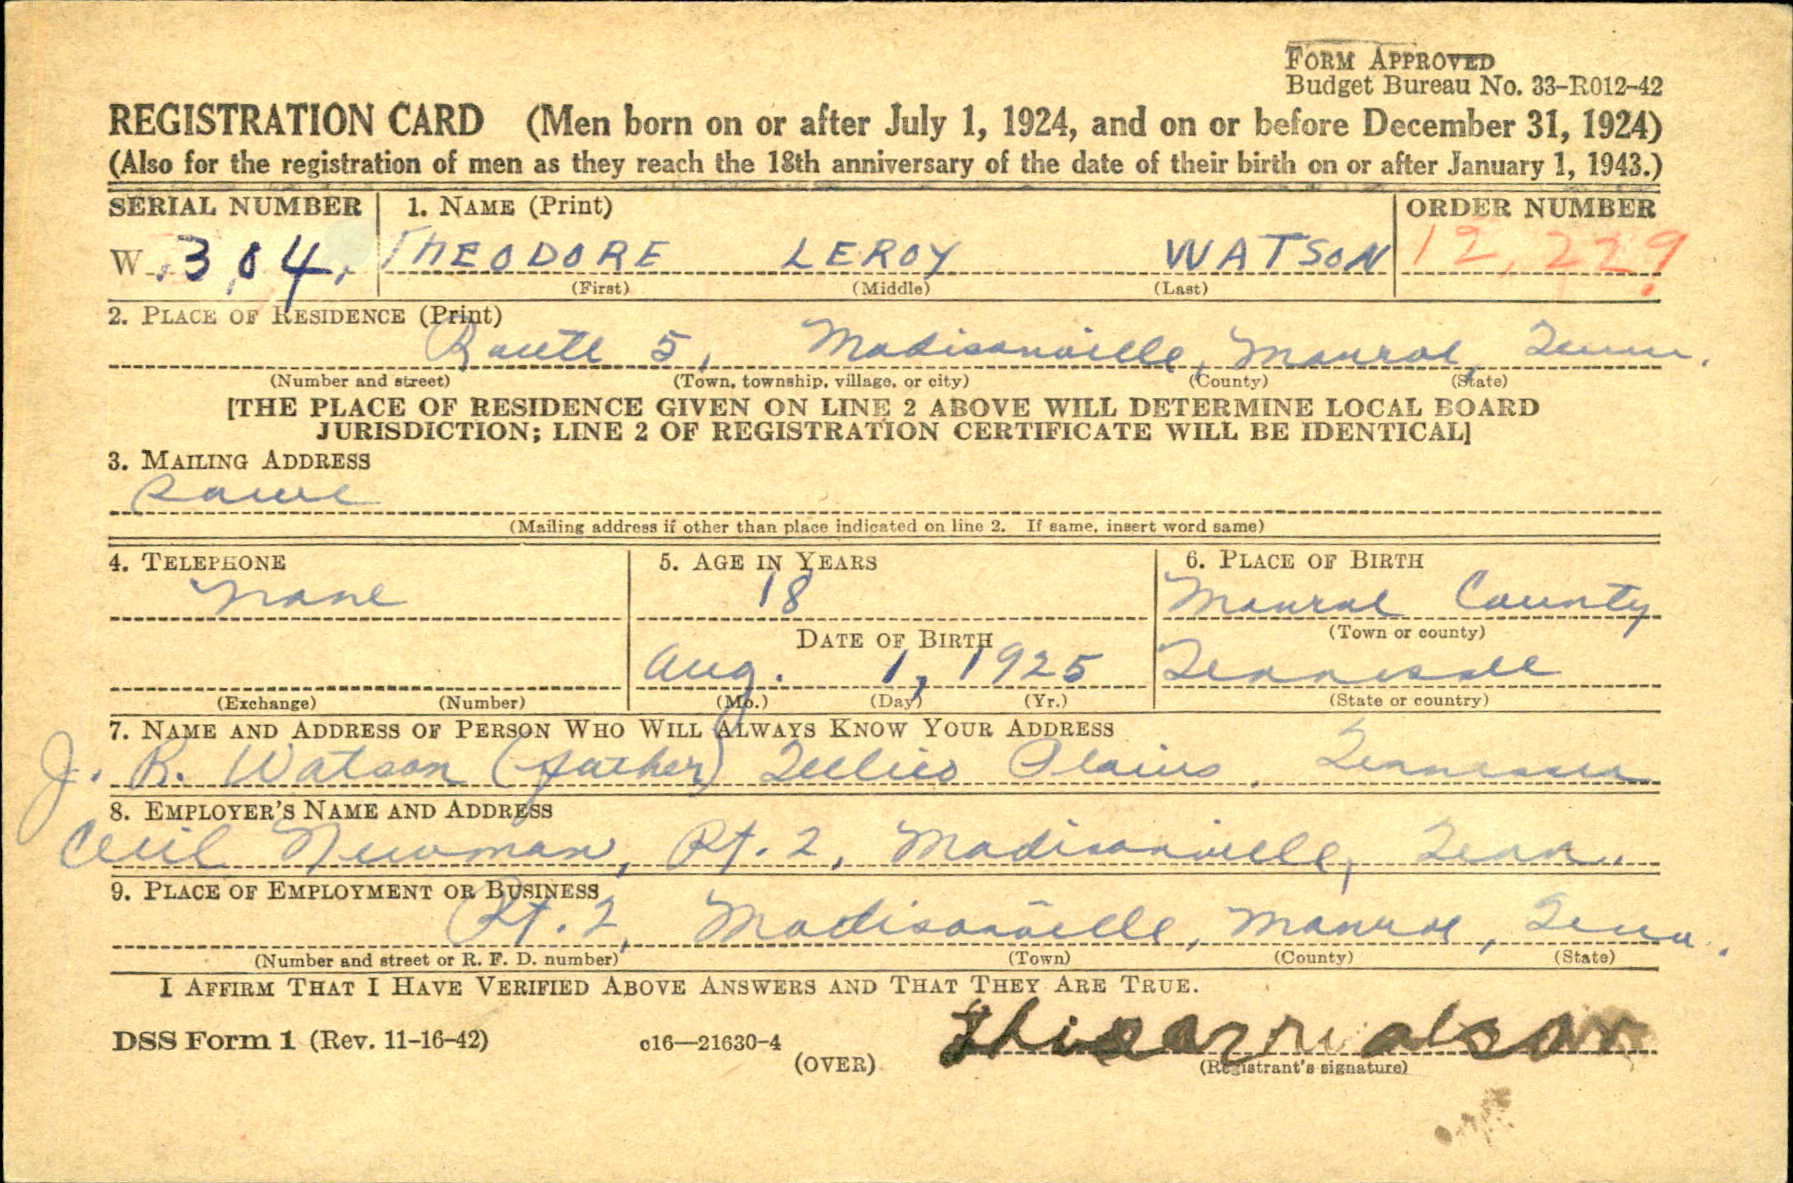 FORM APPROVED
Budget Bureau No. 33-R012-42
REGISTRATION CARD (Men born on or after July 1, 1924, and on or before December 31, 1924)
(Also for the registration of men as they reach the 18th anniversary of the date of their birth on or after January 1, 1943.)
SERIAL NUMBER 1. NAME (Print) ORDER NUMBER
W 304. THEODORE LEROY WATSON 12,229
(First) (Middle) (Last)
2. PLACE OF RESIDENCE (Print)
Route 5, Madisonville, Monroe, Tenn.
(Number and street) (Town, township, village, or city) (County) (State)
[THE PLACE OF RESIDENCE GIVEN ON LINE 2 ABOVE WILL DETERMINE LOCAL BOARD
JURISDICTION; LINE 2 OF REGISTRATION CERTIFICATE WILL BE IDENTICAL]
3. MAILING ADDRESS
Same
(Mailing address if other than place indicated on line 2. If same, insert word same)
4. TELEPHONE 5. AGE IN YEARS 6. PLACE OF BIRTH
None 18 Monroe County
DATE OF BIRTH (Town or county)
Aug. 1, 1925 Tennessee
(Exchange) (Number) (Mo.) (Day) (Yr.) (State or country)
7. NAME AND ADDRESS OF PERSON WHO WILL ALWAYS KNOW YOUR ADDRESS
J. R. Watson (father) Tellico Plains, Tennessee
8. EMPLOYER'S NAME AND ADDRESS
Cecil Newman, Rt. 2, Madisonville, Tenn.
9. PLACE OF EMPLOYMENT OR BUSINESS
Rt. 2, Madisonville, Monroe, Tenn.
(Number and street or R. F. D. number) (Town) (County) (State)
I AFFIRM THAT I HAVE VERIFIED ABOVE ANSWERS AND THAT THEY ARE TRUE.
DSS Form 1 (Rev. 11-16-42) c16—21630-4
(OVER) (Registrant's signature)